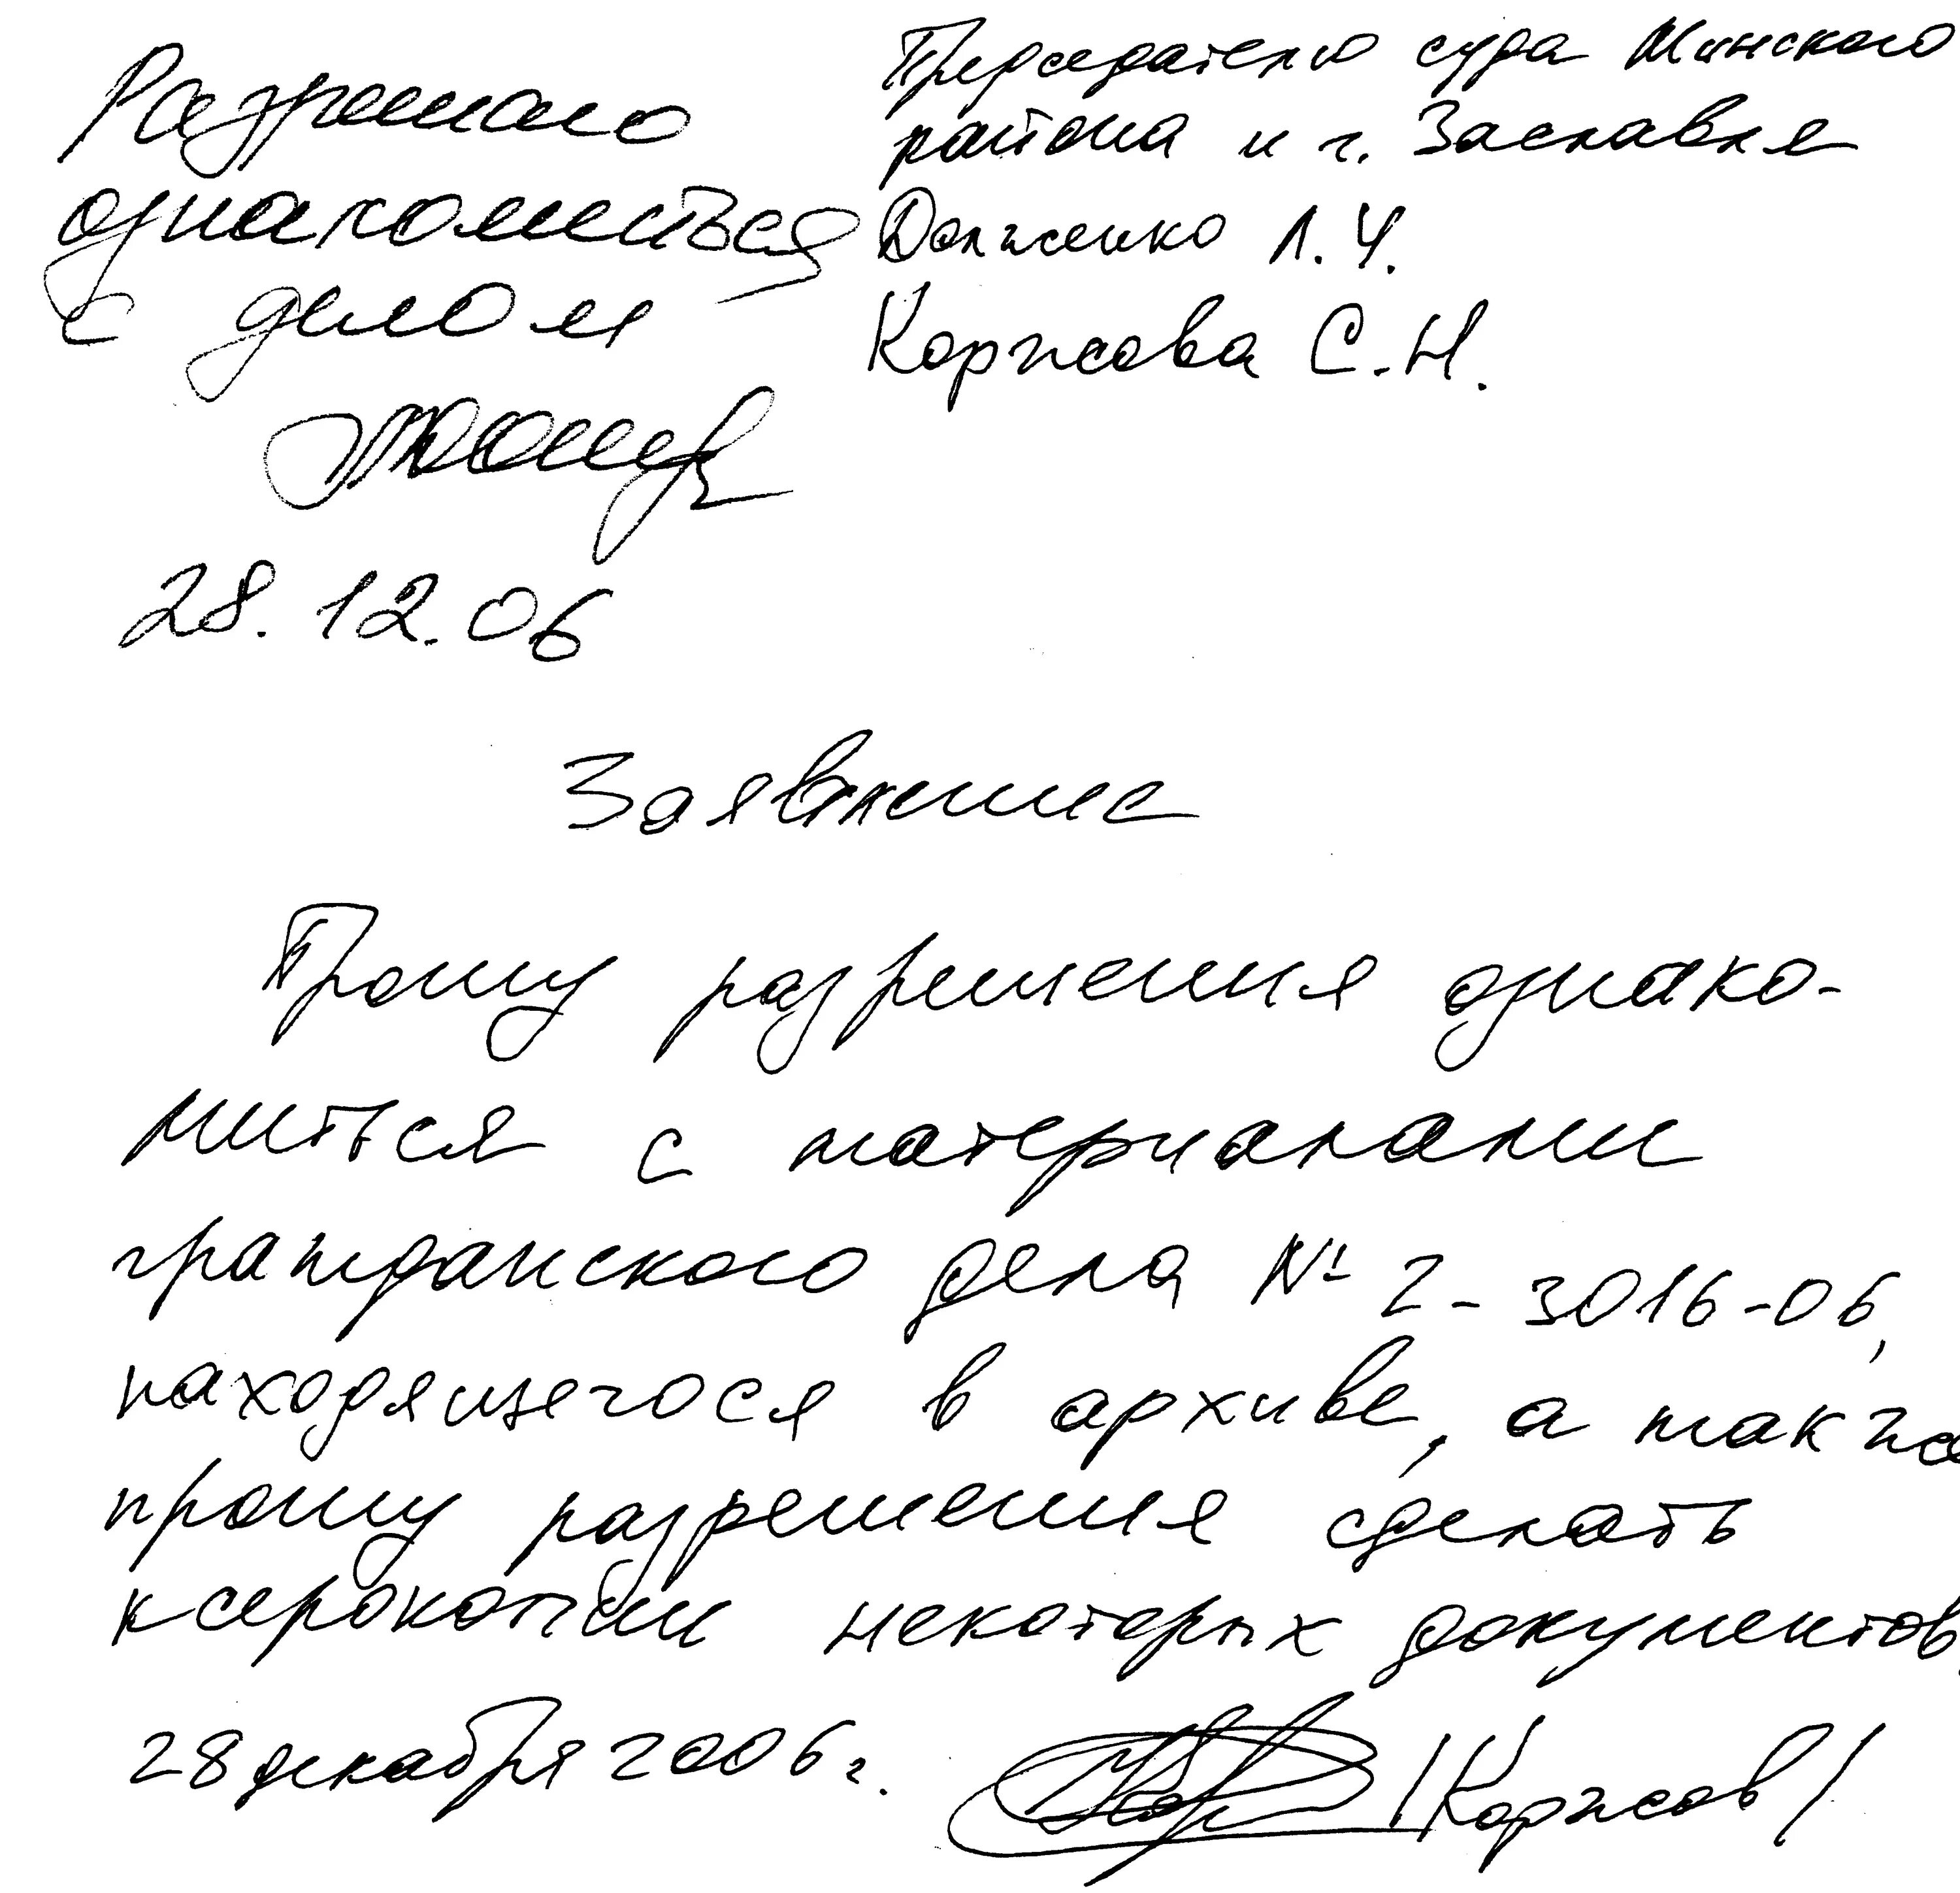 Председателю суда Минского
района и г. Заславля
Долженко Л.Ч.
Коржова С.Н.
Разрешаю
ознакомиться
с делом
28.12.06
Заявление
Прошу разрешения ознако-
мится с материалами
гражданского дела № 2-3016-06,
находящегося в архиве, а также
прошу разрешения сделать
ксерокопии некоторых документов.
28 декабря 2006 г.
/Коржов/